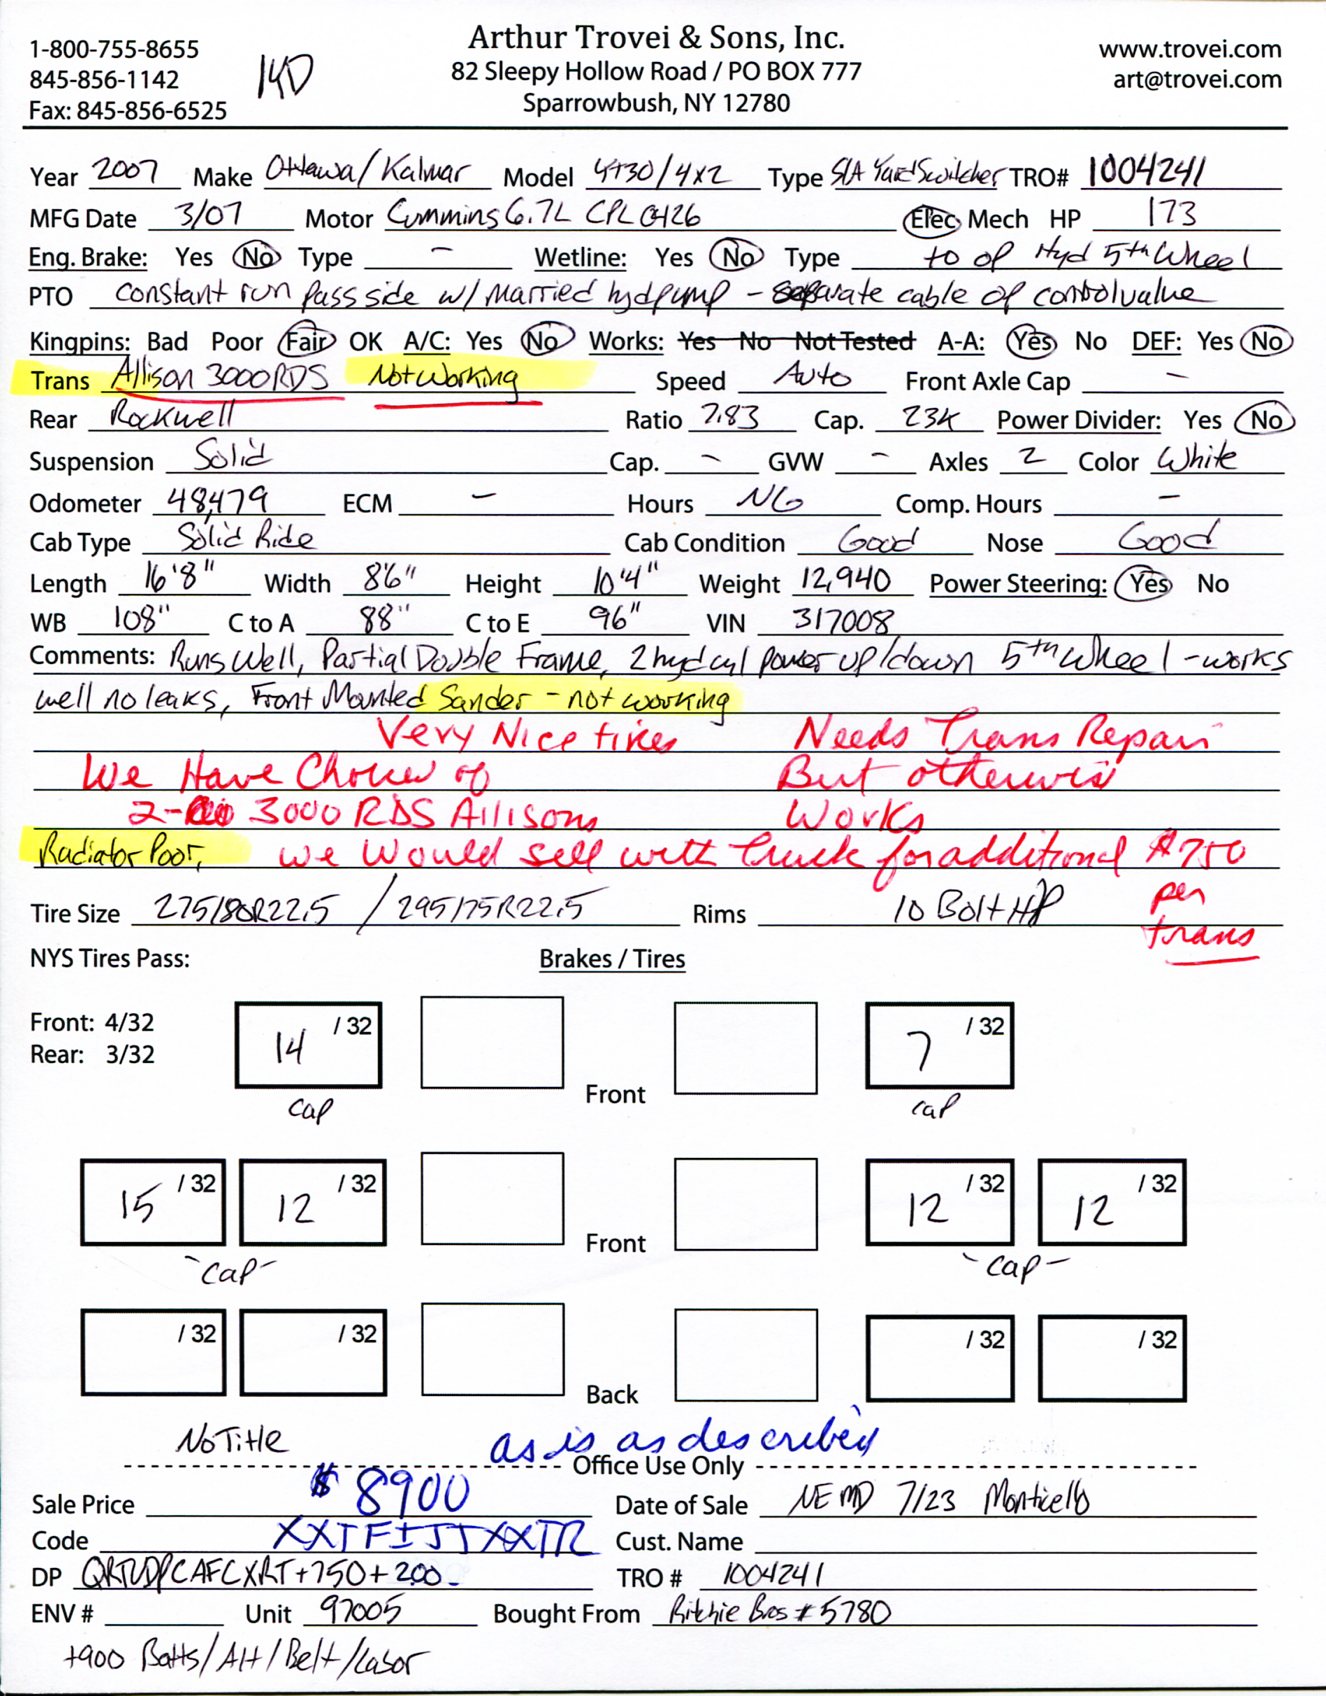 Arthur Trovei & Sons, Inc.
1-800-755-8655 www.trovei.com
845-856-1142 82 Sleepy Hollow Road / PO BOX 777 art@trovei.com
Fax: 845-856-6525 Sparrowbush, NY 12780
Year 2007 Make Ottawa/Kalmar Model 4x30/4x2 Type S/A Yard Switcher TRO# 1004241
MFG Date 3/07 Motor Cummins 6.7L CPL 0426 Elec Mech HP 173
Eng. Brake: Yes No Type - Wetline: Yes No Type to op Hyd 5th Wheel
PTO constant run pass side w/ Married hyd pump - separate cable op control valve
Kingpins: Bad Poor Fair OK A/C: Yes No Works: Yes No Not Tested A-A: Yes No DEF: Yes No
Trans Allison 3000RDS Not Working Speed Auto Front Axle Cap -
Rear Rockwell Ratio 7.83 Cap. 23K Power Divider: Yes No
Suspension Solid Cap. - GVW - Axles 2 Color White
Odometer 48,479 ECM - Hours NG Comp. Hours -
Cab Type Solid Ride Cab Condition Good Nose Good
Length 16'8" Width 8'6" Height 10'4" Weight 12,940 Power Steering: Yes No
WB 108" C to A 88" C to E 96" VIN 317008
Comments: Runs Well, Partial Double Frame, 2 hyd cyl power up/down 5th Wheel - works
well no leaks, Front Mounted Sander - not working
Very Nice tires Needs Trans Repair
We Have Choice of But otherwis
2- 3000 RDS Allisons Works
Radiator Poor, we would sell with truck for additional $750
per
trans
Tire Size 275/80R22.5 / 295/75R22.5 Rims 10 Bolt HP
NYS Tires Pass: Brakes / Tires
Front: 4/32 14 /32 7 /32
Rear: 3/32 Front
cap cap
15 /32 12 /32 12 /32 12 /32
Front
-cap- -cap-
/32 /32 /32 /32
Back
No Title as is as described
Office Use Only
Sale Price $8900 Date of Sale NEMD 7/23 Monticello
Code XXTFIJTXXTR Cust. Name
DP +750+200- TRO # 1004241
ENV # Unit 97005 Bought From Ritchie Bros #5780
+900 Batts/Alt/Belt/Labor